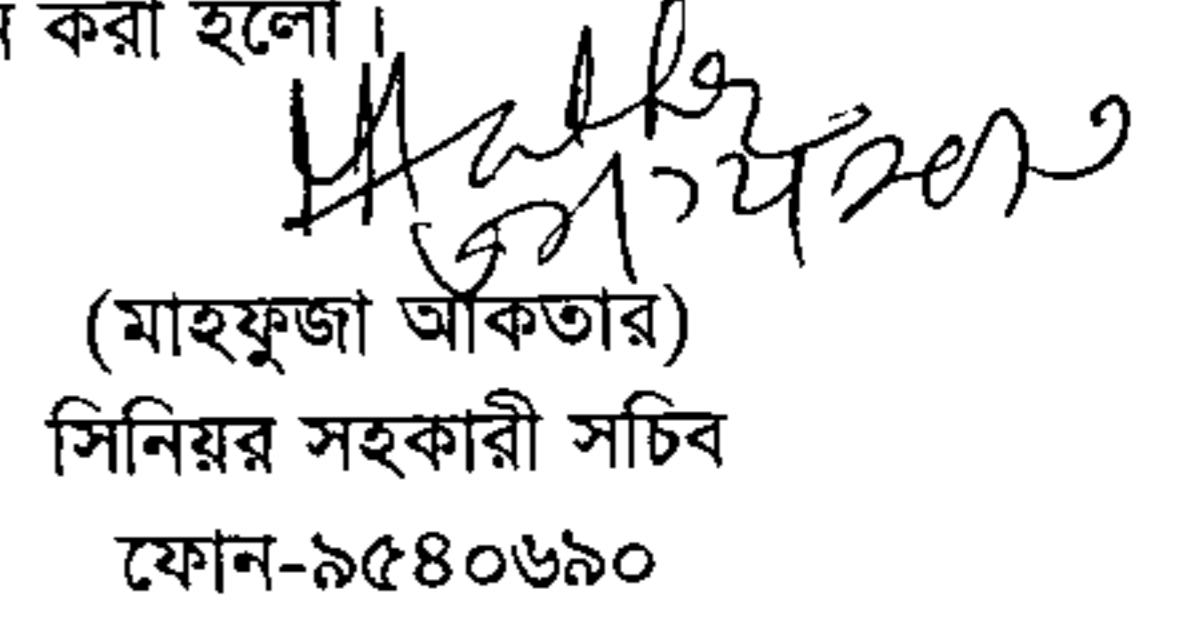 করা হলো।
(মাহফুজা আকতার)
সিনিয়র সহকারী সচিব
ফোন-৯৫৪০৬৯০